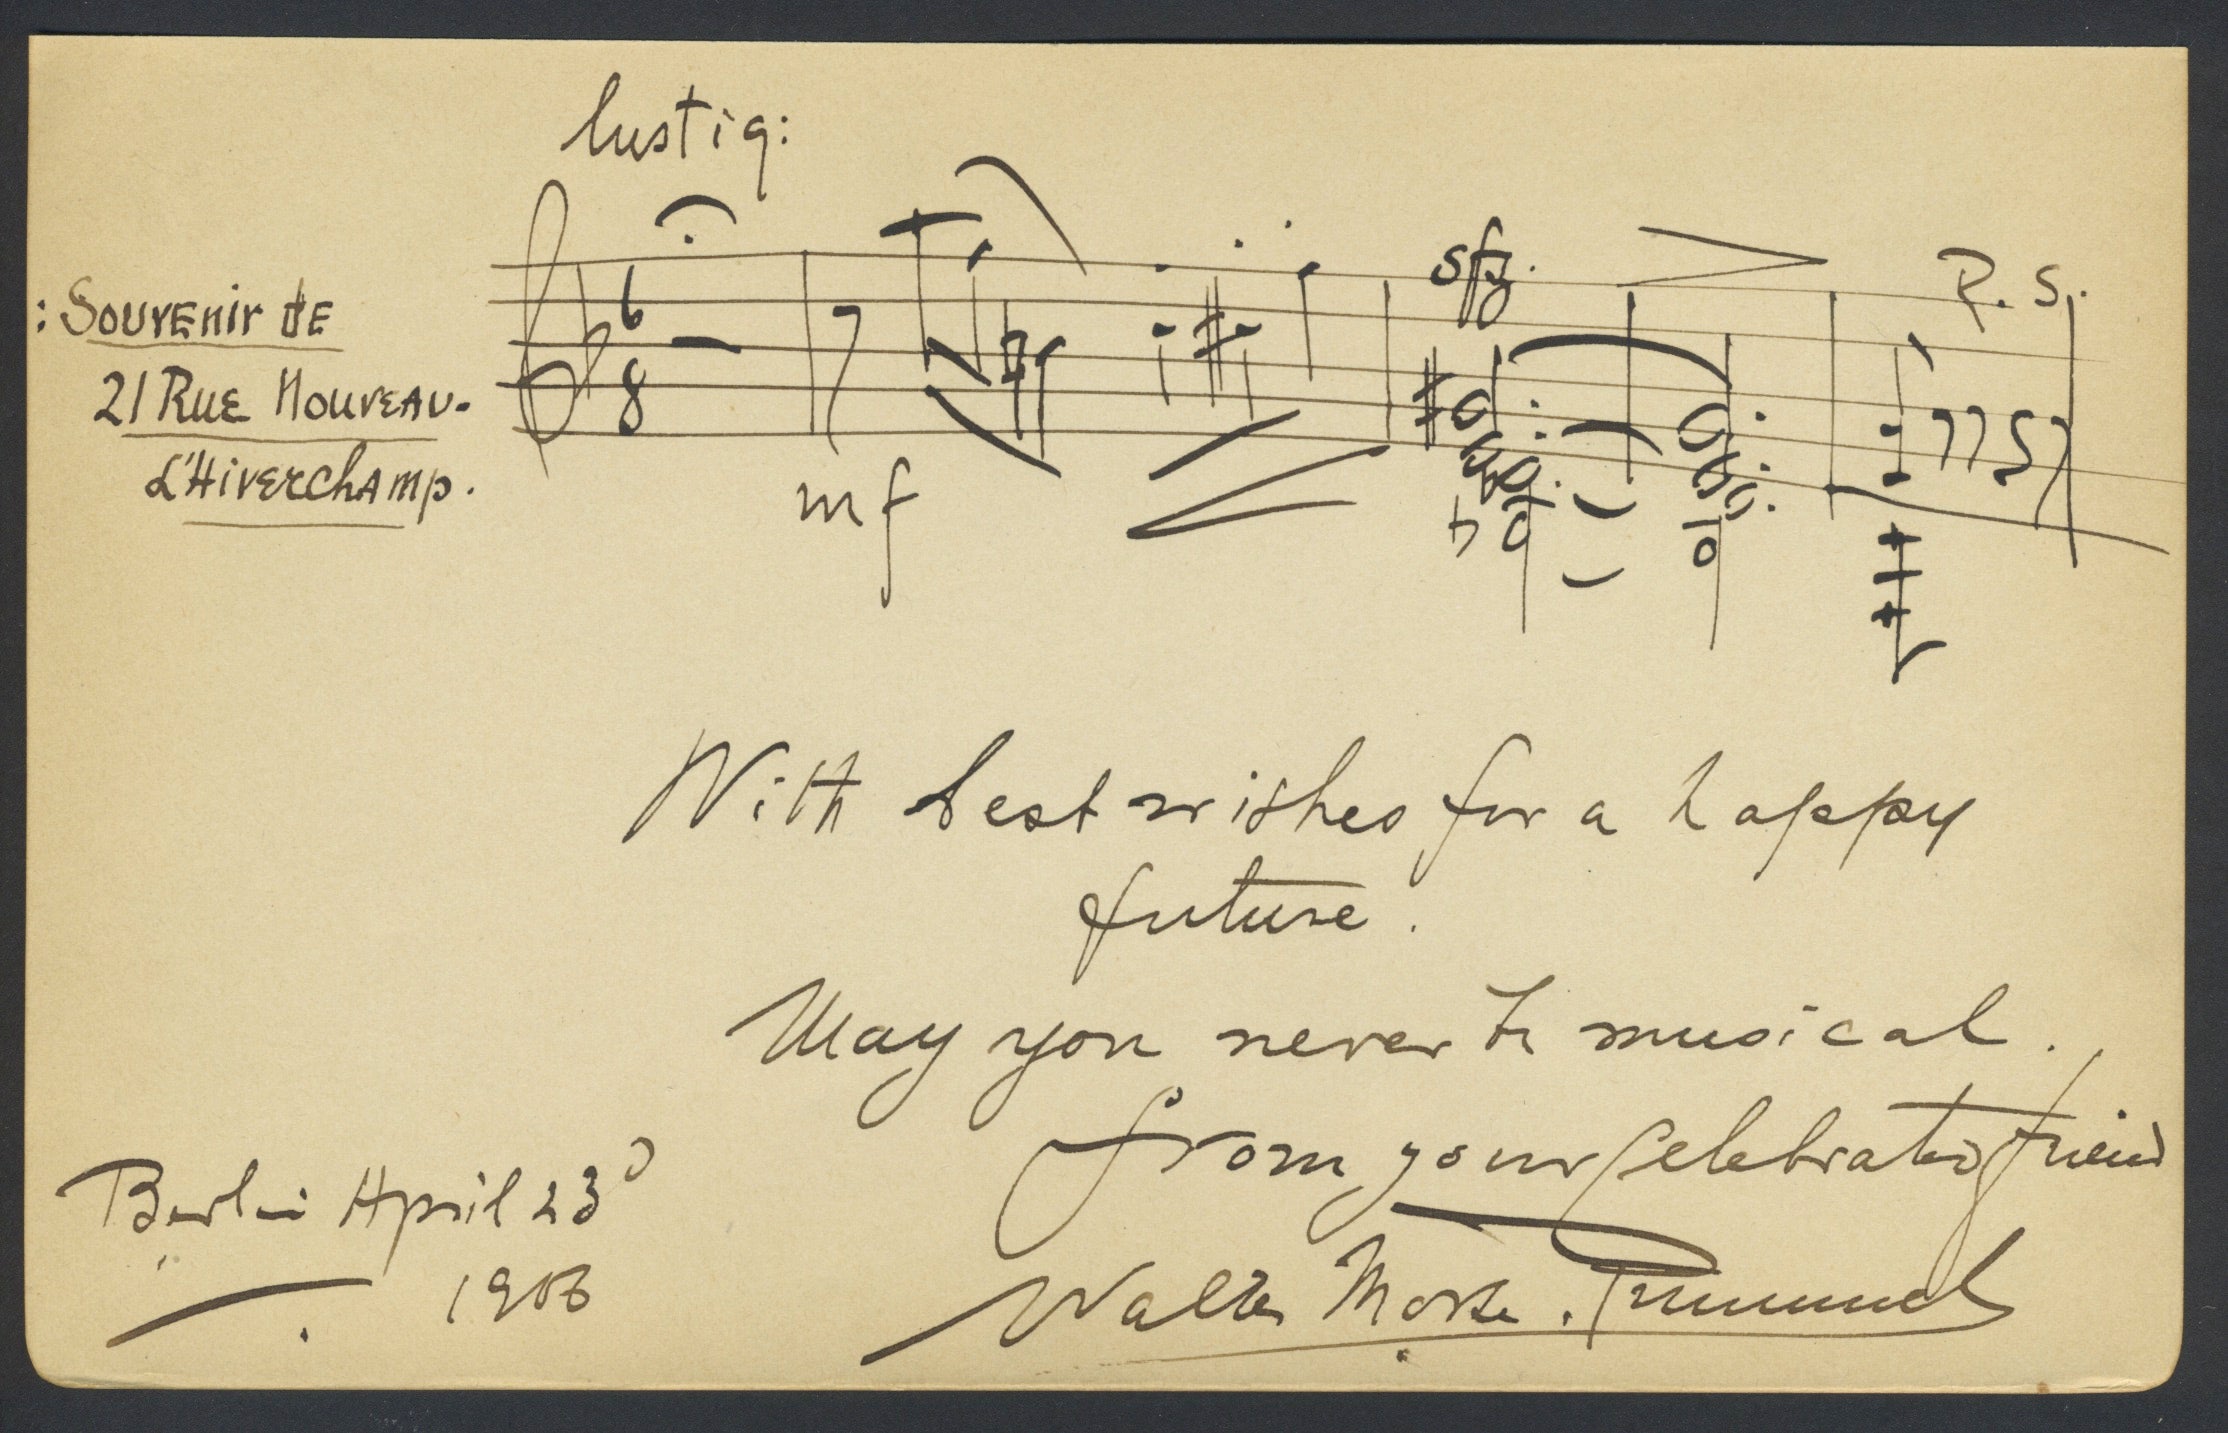 lustig:
6
8
: Souvenir de
21 Rue Nouveau-
L'Hiverchamp.
mf
sfz.
P. S.
With best wishes for a happy
future.
May you never be musical.
from your celebrated friend
Berlin April 23d
1906
Walter Morse Rummel